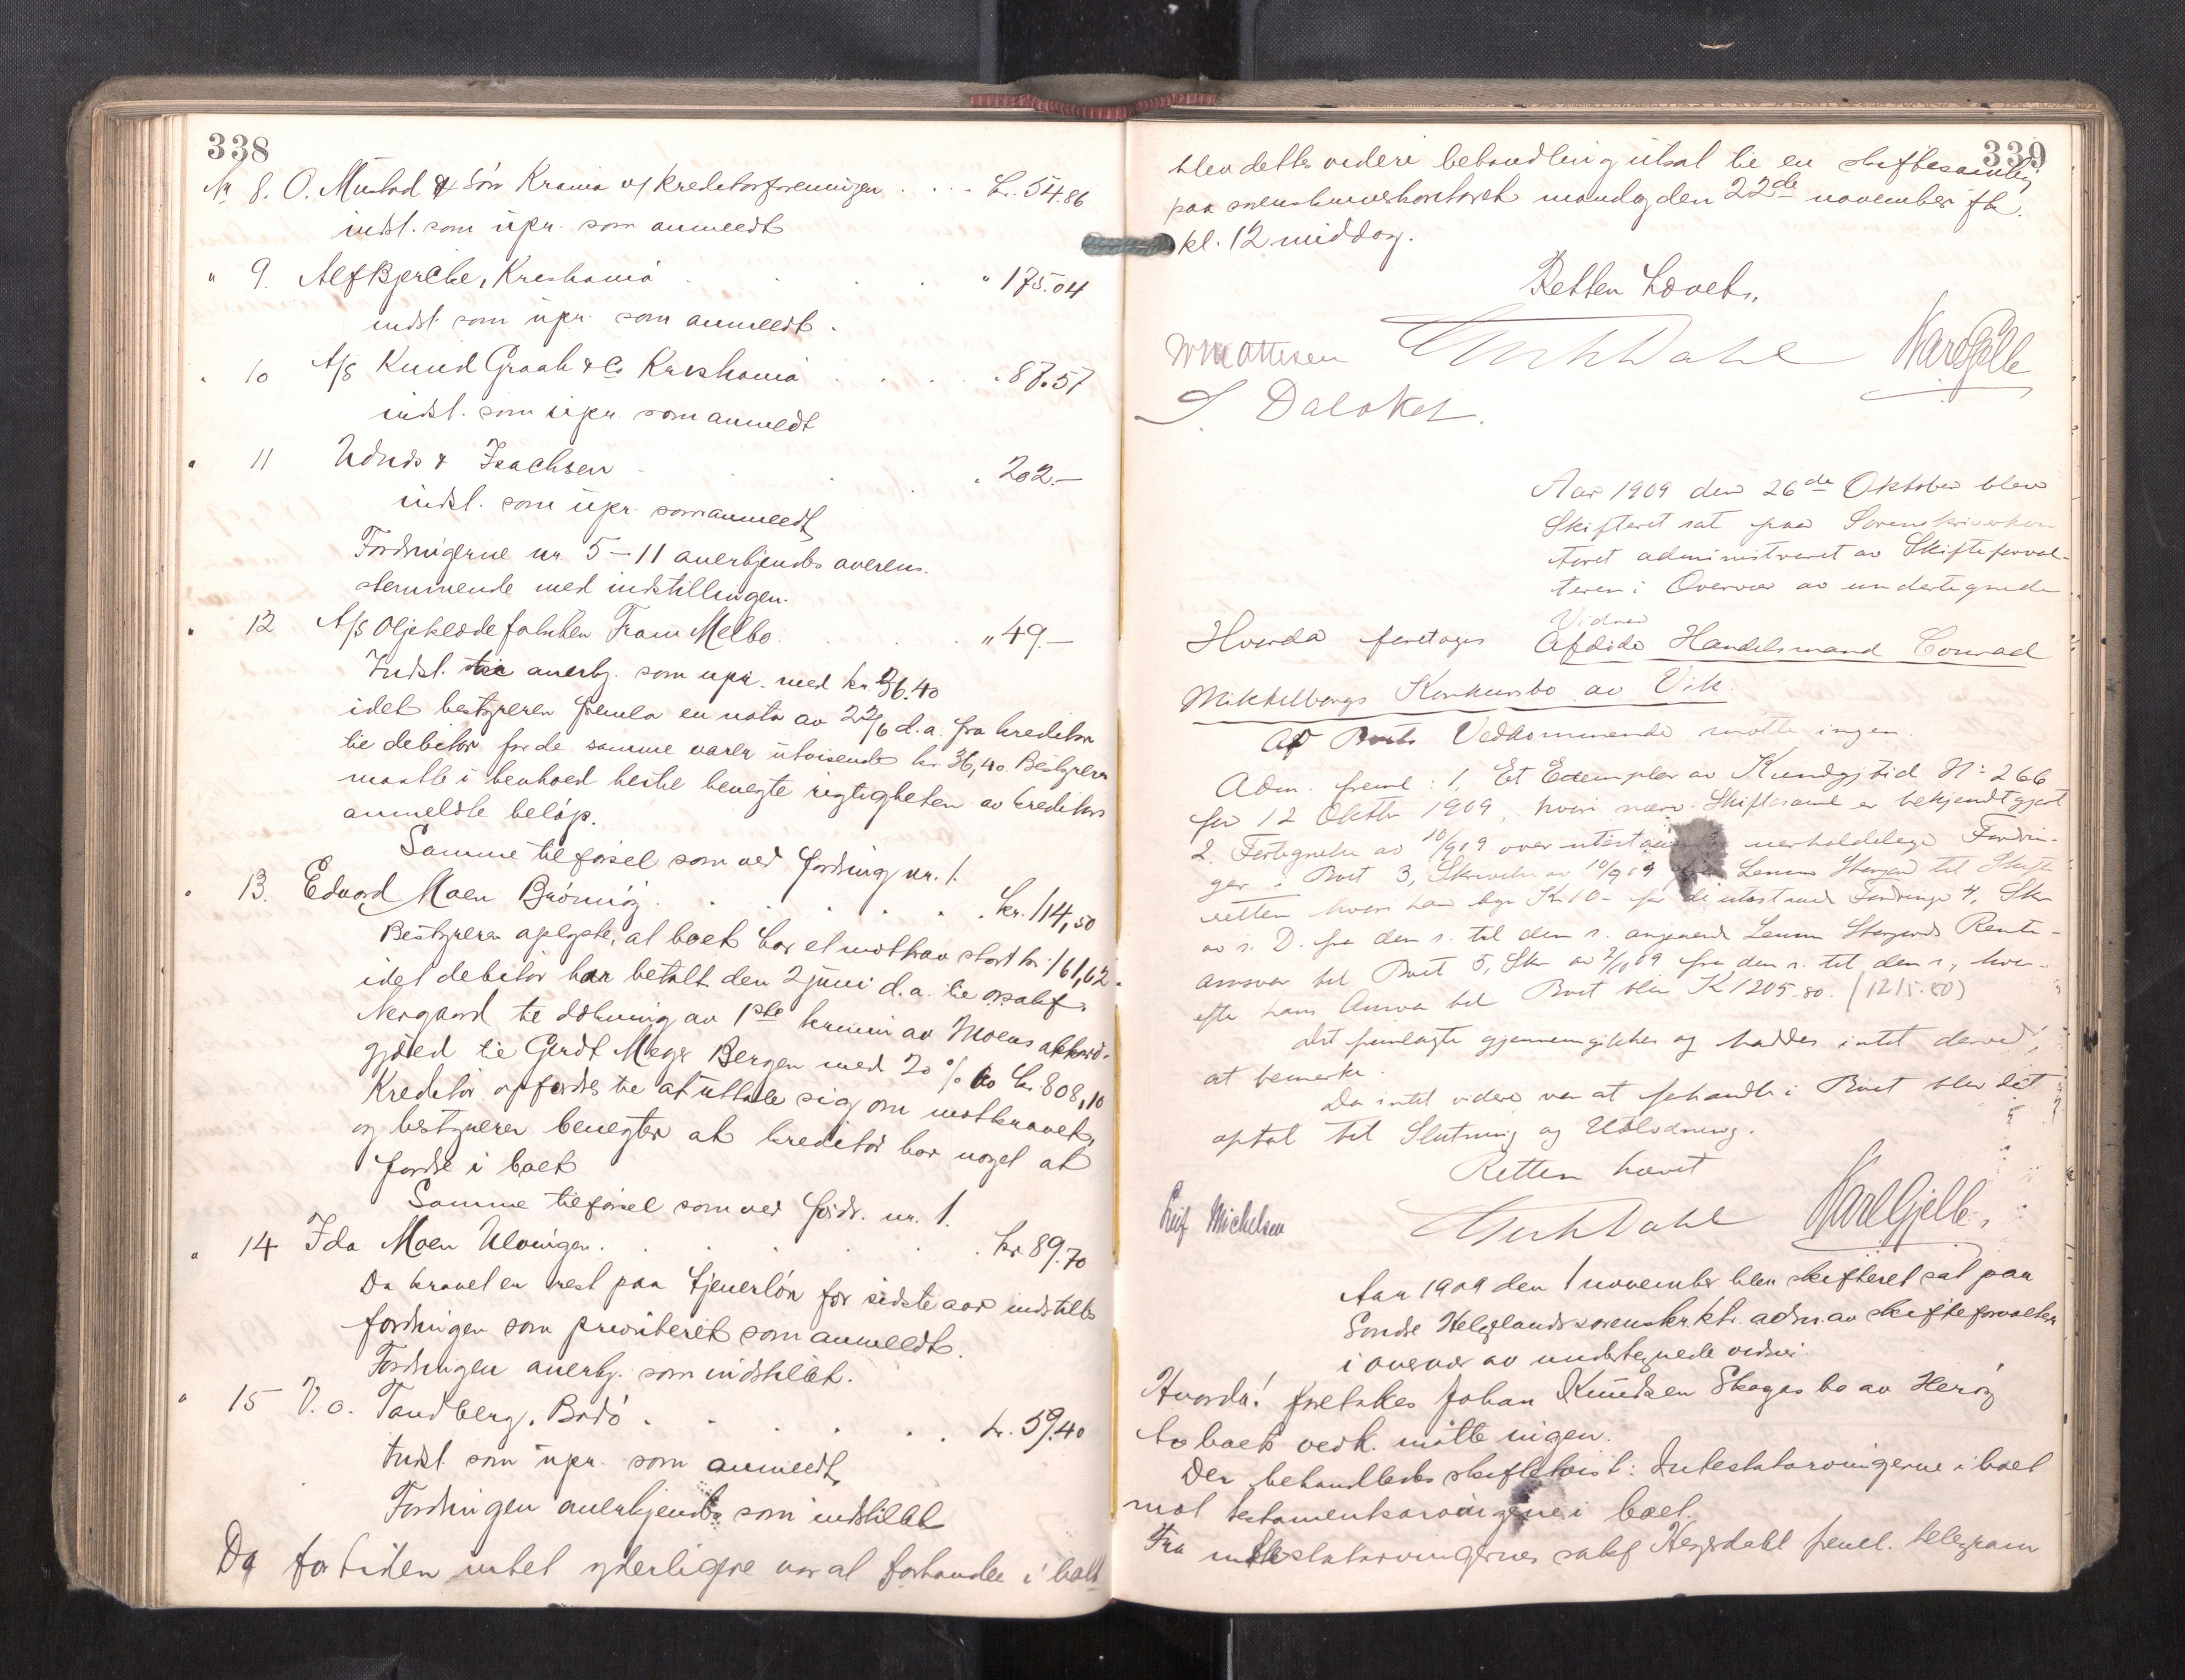 338
Nr 8. O. Mustad & Søn Krania v/ kreditorforeningen . . . kr. 54.86
indst. som upr. som anmeldt
" 9. Alf Bjercke, Kristiania . . . " 175.04
indst. som upr. som anmeldt.
" 10 A/S Knud Graah & Co Kristiania . . . " 87.57
indst. som upr. som anmeldt
" 11 & Isachsen . . . " 202.—
indst. som upr. som anmeldt
Fordringerne nr. 5—11 anerkjendes overens-
stemmende med indstillingen.
" 12 A/S Oljeklædefabriken Fram Melbo . . . " 49.—
Indst. anerkj. som upr. med kr. 36.40
idet bestyreren fremla en nota av 22/6 d.a. fra kreditor
til debitor for de samme varer utvisende kr. 36,40. Bestyreren
maatte i henhold hertil benegte rigtigheten av kreditors
anmeldte beløp.
Samme tilførsel som ved fordring nr. 1.
" 13. Edvard Moen Brønnøy . . . kr. 114,50
Bestyreren oplyste, at boet har et motkrav stort kr. 161,62
idet debitor har betalt den 2 juni d.a. til o.r.sakf.
Nergaard til dækning av 1ste termin av Moens akkord-
gjæld til Gerdt Meyer Bergen med 20 % av kr. 808,10
Kreditor opfordres til at uttale sig om motkravet,
og bestyreren benegter at kreditor har noget at
fordre i boet
Samme tilførsel som ved fordr. nr. 1.
" 14 Ida Moen Ulvingen . . . kr. 89.70
Da kravet er rest paa tjenerløn for sidste aar indstilles
fordringen som prioriteret som anmeldt.
Fordringen anerkj. som indstillet.
" 15 V. o. Tandberg, Bodø . . . kr. 59.40
Indst. som upr. som anmeldt
Fordringen anerkjendtes som indstillet
Da for tiden intet yderligere var at forhandle i boet
339
blev dettes videre behandling utsat til en skiftesamling
paa sorenskriverkontoret mandag den 22de november fk.
kl. 12 middag.
Retten hævet.
Dahl Karl Gjelle
Aar 1909 den 26de Oktober blev
Skifteret sat paa Sorenskriverkon-
toret administreret av Skifteforval-
teren i Overvær av undertegnede
Vidner
Hvorda foretages Afdøde Handelsmand Conrad
Mikkelborgs Konkursbo av Vik.
Af Boets Vedkommende møtte ingen.
Adm. freml: 1, Et Exemplar av Kundgj tid No 266
for 12 Oktbr 1909, hvori nærv. Skiftesaml er bekjendtgjort
2. Fortegnelse av 10/9 09 over utestaaende uerholdelige Fordrin-
ger i Boet 3, Skrivelse av 10/9 09 fra Lensm til Skifte-
retten hvori han byr K. 10- for de utestaaende Fordringer 4, Skr
av s. D. fra den s. til den s. angaaende Lensm Rente-
ansvar til Boet 5, Skr av 2/10 09 fra den s. til den s., hvor-
efter hans Ansvar til Boet blir K 1205.80. (1215.80)
Det fremlagte gjennemgikkes og haddes intet derved
at bemerke.
Da intet videre var at forhandle i Boet blev det
optat til Slutning og Utlodning.
Retten hævet
Leif Michelsen Dahl Karl Gjelle
Aar 1909 den 1 november blev skifteret sat paa
Søndre Helgelands sorenskr.ktr. adm. av skifteforvalteren
i overvær av undertegnede vidner.
Hvorda! foretakes Johan Knudsen Skogas bo av Herøy
Av boets vedk. møtte ingen.
Der behandledes skiftetvist: Intestatarvingerne i boet
mot testamentsarvingene i boet.
Fra intestatarvingernes sakf freml. telegram